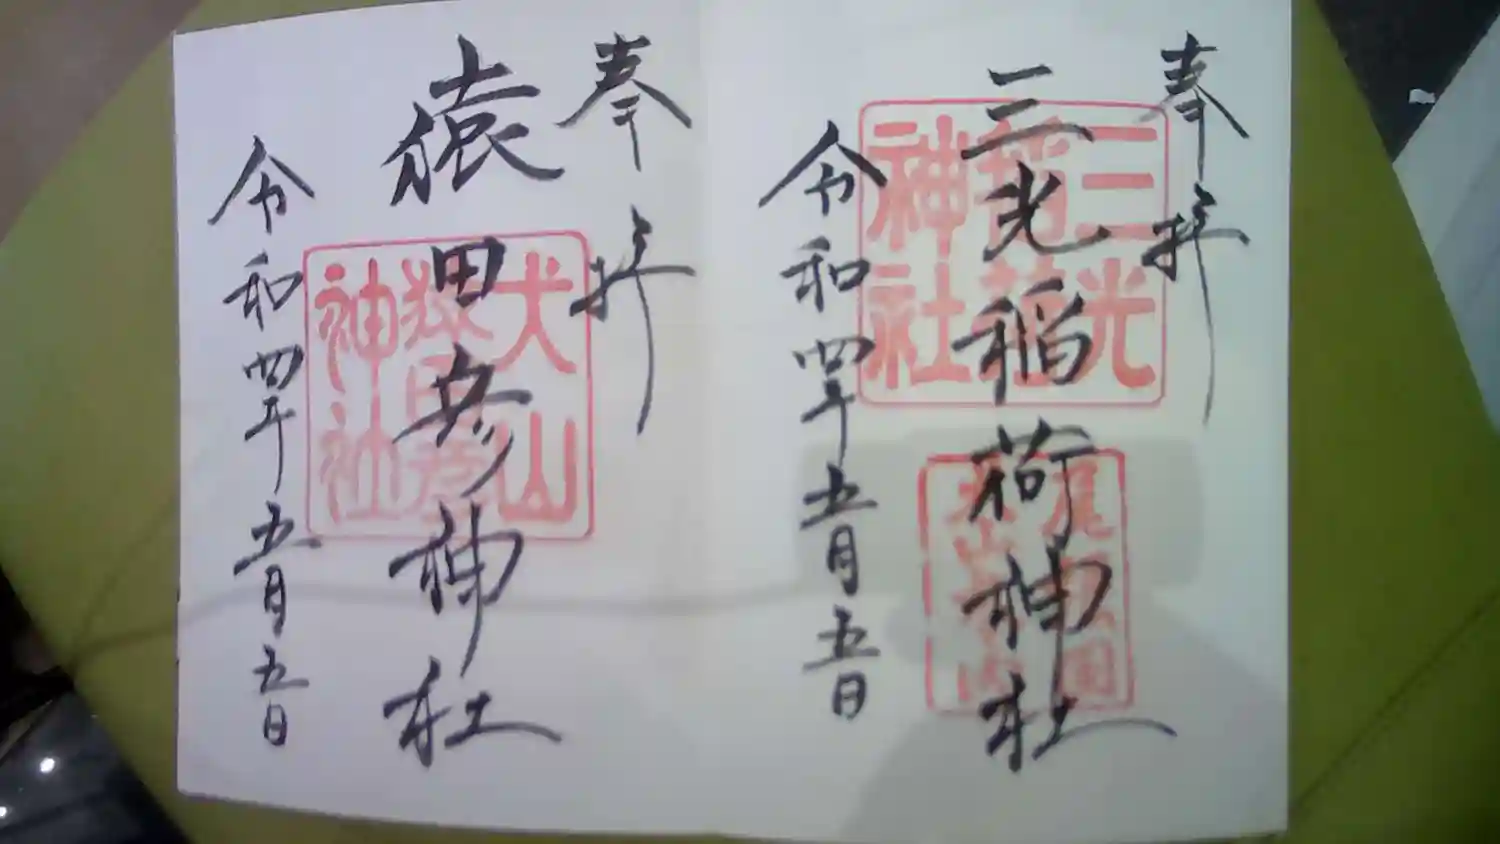 奉拝
三光稲荷神社
三光稲荷神社
令和四年五月五日
奉拝
猿田彦神社
犬山猿田彦神社
令和四年五月五日